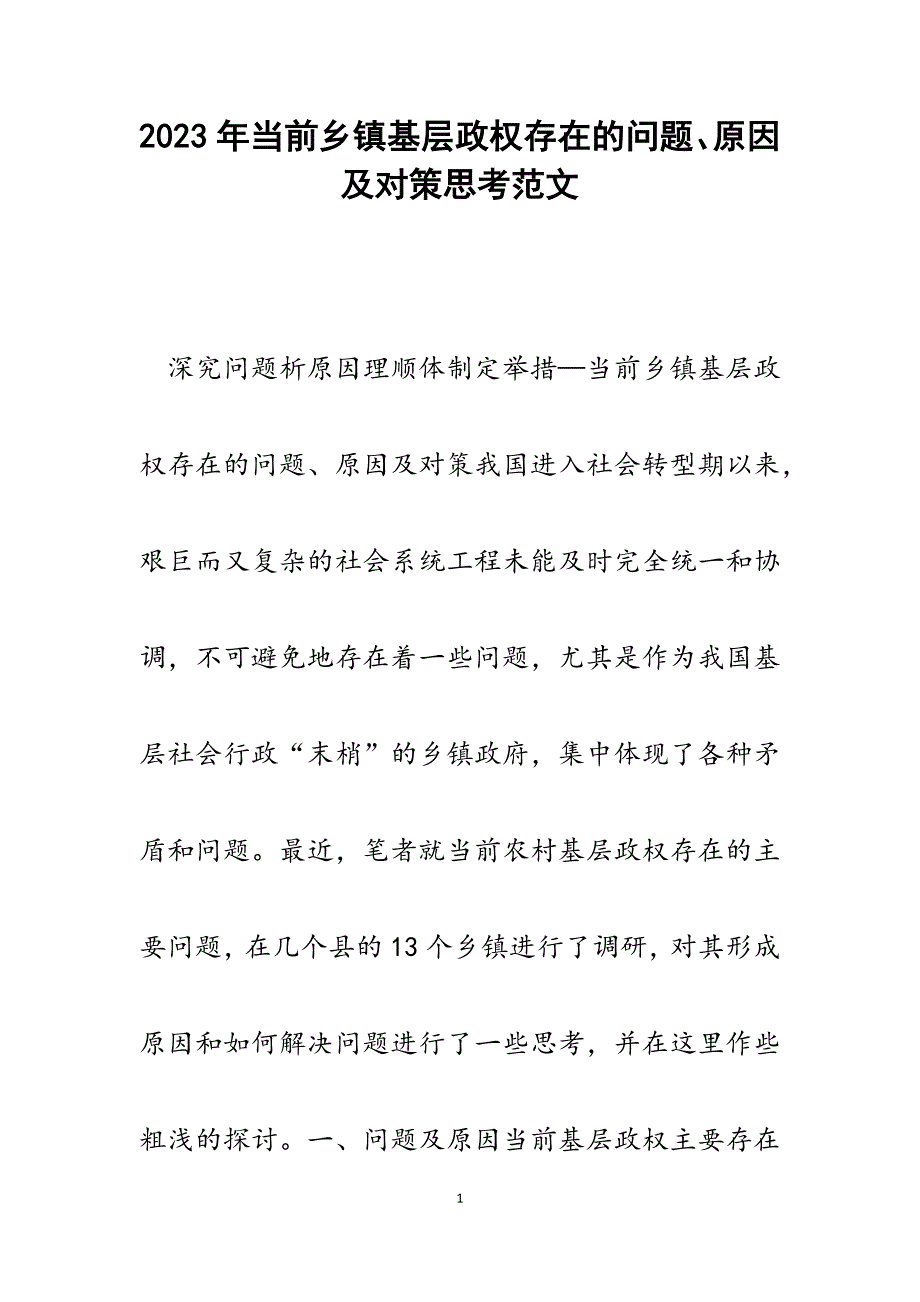 2023年当前乡镇基层政权存在的问题、原因
及对策思考范文
深究问题析原因理顺体制定举措—当前乡镇基层政
权存在的问题、原因及对策我国进入社会转型期以来，
艰巨而又复杂的社会系统工程未能及时完全统一和协
调，不可避免地存在着一些问题，尤其是作为我国基
层社会行政“末梢”的乡镇政府，集中体现了各种矛
盾和问题。最近，笔者就当前农村基层政权存在的主
要问题，在几个县的13个乡镇进行了调研，对其形成
原因和如何解决问题进行了一些思考，并在这里作些
粗浅的探讨。一、问题及原因当前基层政权主要存在
1